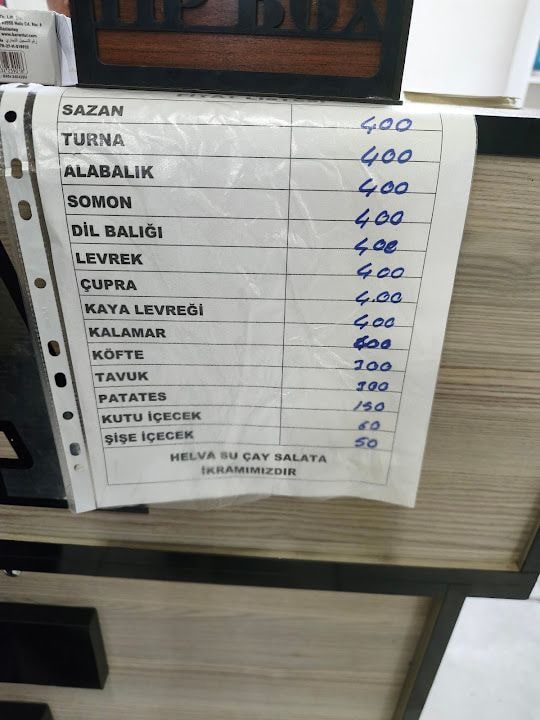 TIP BOX
SAZAN 400
TURNA 400
ALABALIK 400
SOMON 400
DİL BALIĞI 400
LEVREK 400
ÇUPRA 400
KAYA LEVREĞİ 400
KALAMAR
KÖFTE 300
TAVUK 300
PATATES 150
KUTU İÇECEK 60
ŞİŞE İÇECEK 50
HELVA SU ÇAY SALATA
İKRAMIMIZDIR